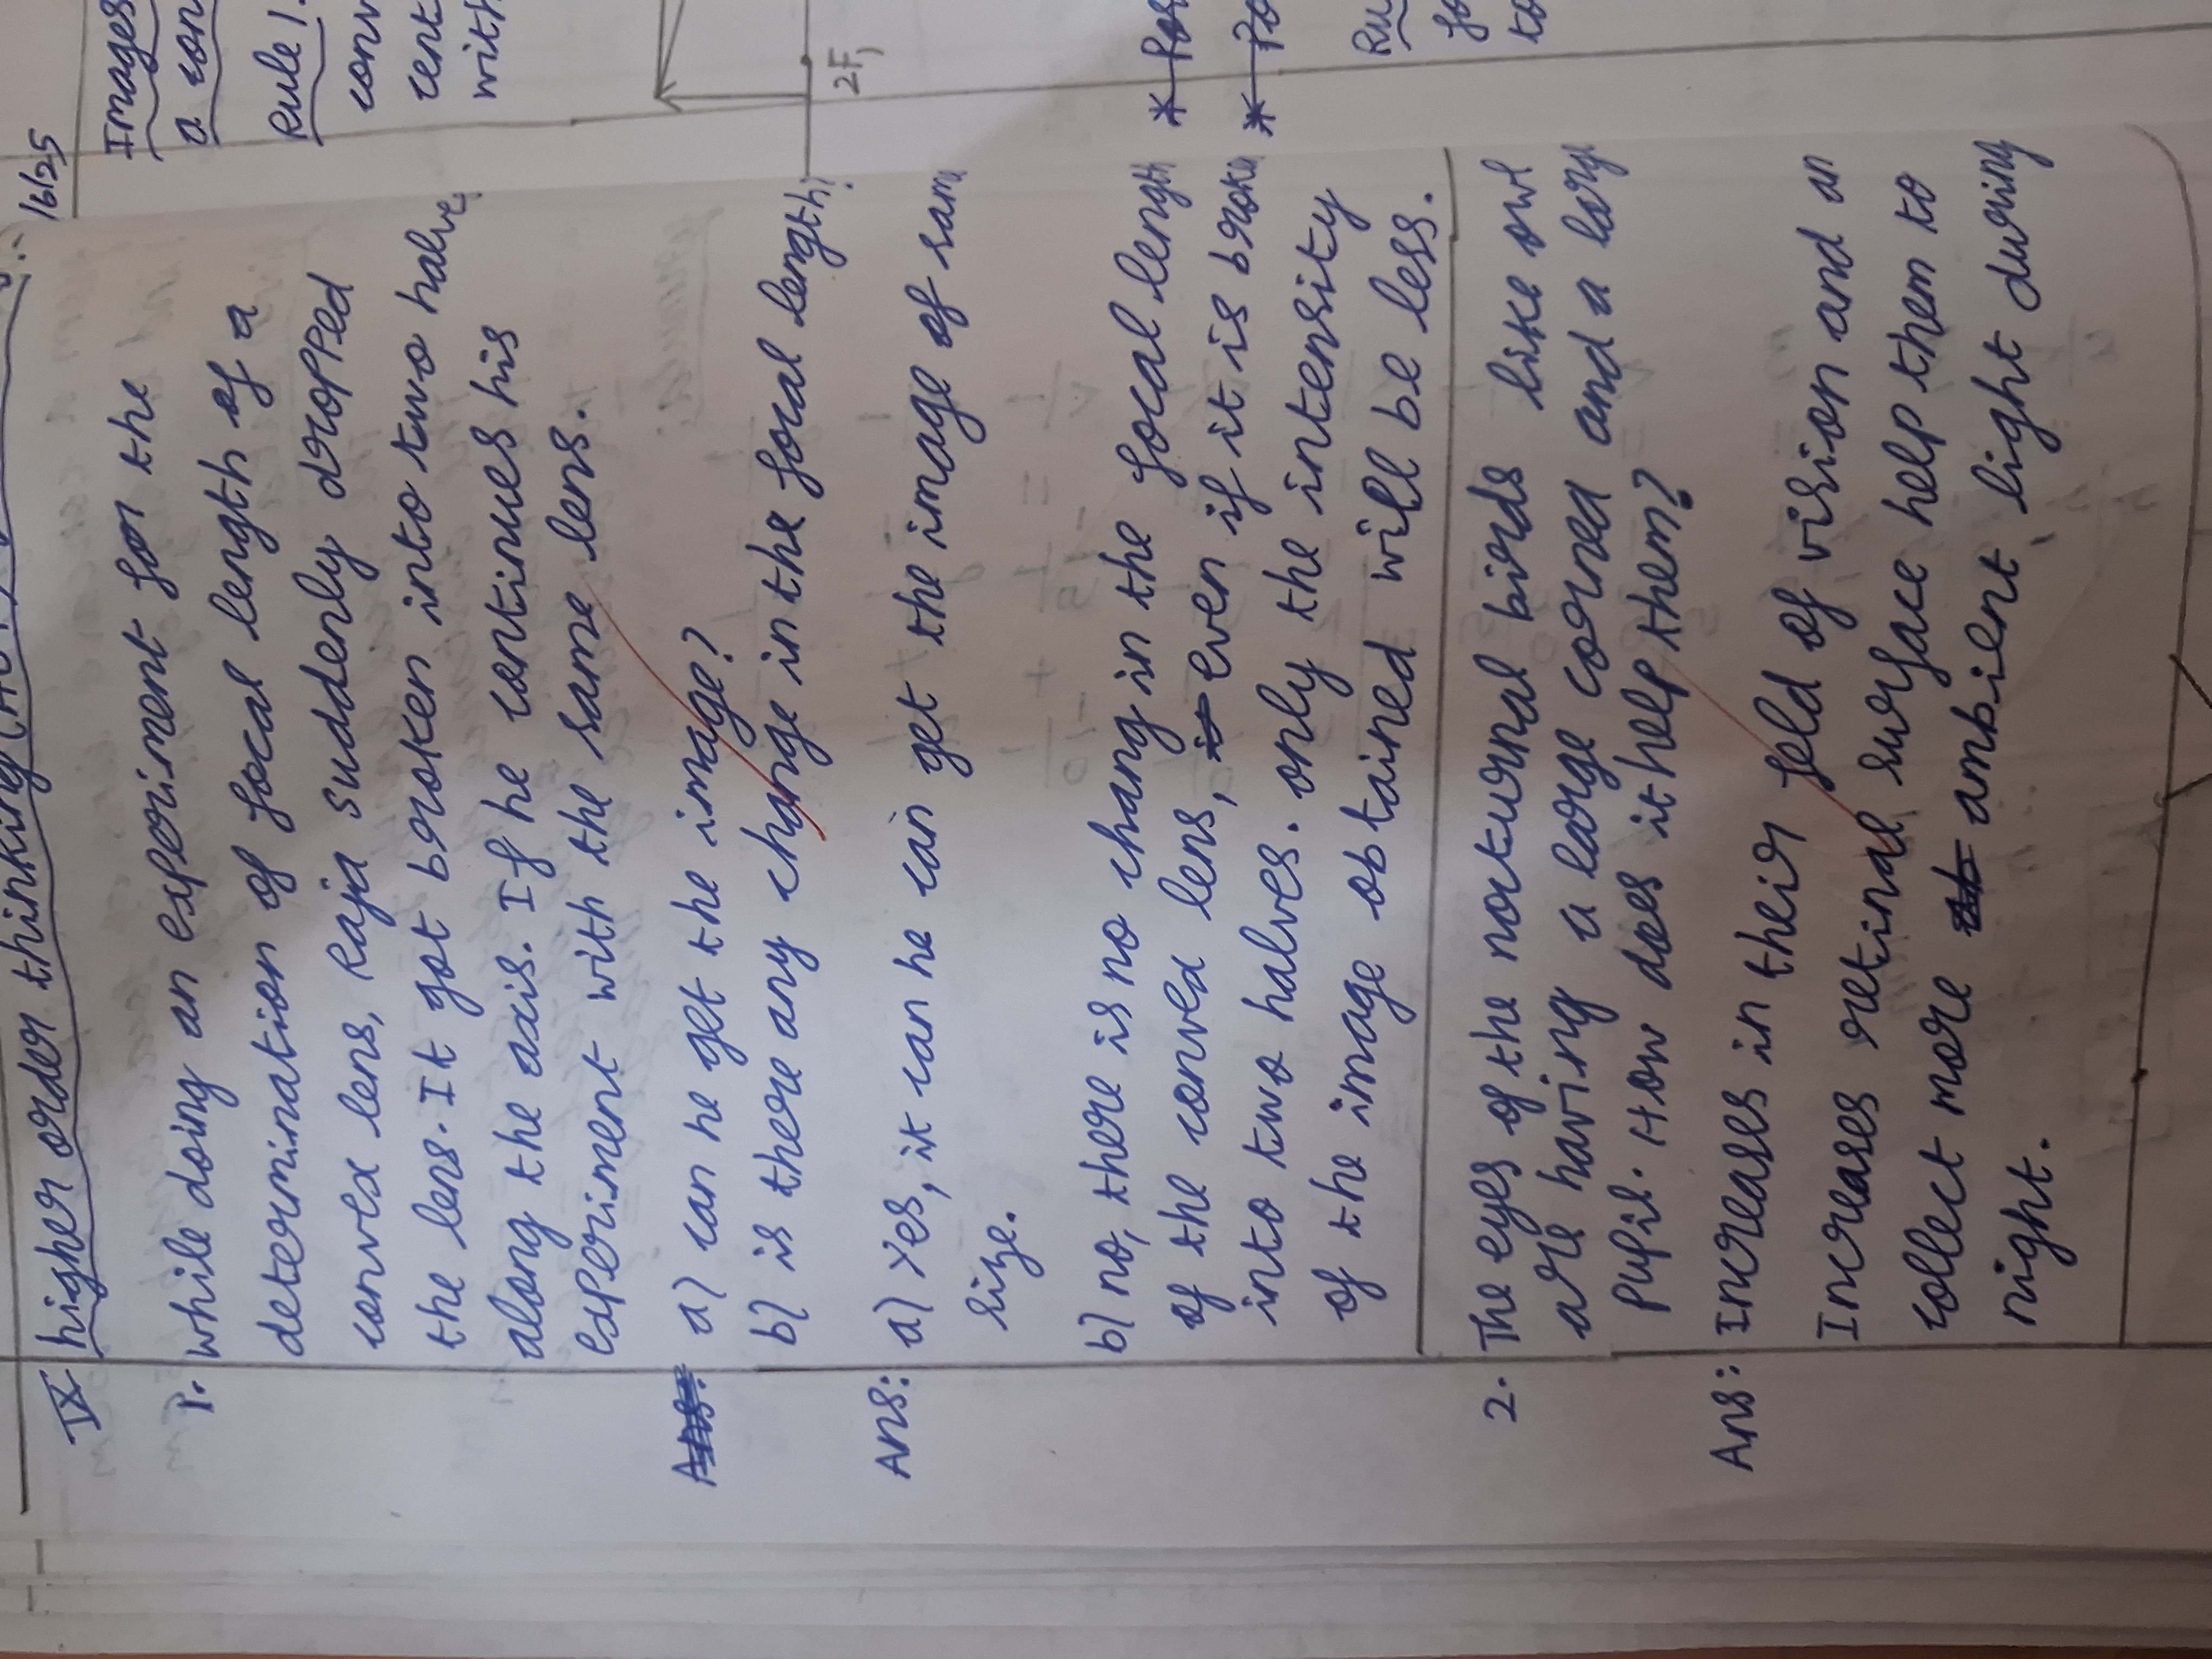 IX higher order thinking
1. while doing an experiment for the
determination of focal length of a
convex lens, Raja suddenly dropped
the lens. It got broken into two halves
along the axis. If he continues his
experiment with the same lens.
a) can he get the image?
b) is there any change in the focal length?
Ans: a) Yes, it can he can get the image of sam
size.
b) no, there is no chang in the focal lengh
of the convex lens, even if it is broken
into two halves. only the intensity
of the image obtained will be less.
2. The eyes of the nocturnal birds like owl
are having a large cornea and a larg
pupil. How does it help them?
Ans: Increases in their feld of vision and an
Increases retinal surface help them to
collect more ambient light during
night.
16/25
Images
a con
Rule 1.
conv
cent
with
2F1
* Pos
* Po
Ru
fo
to